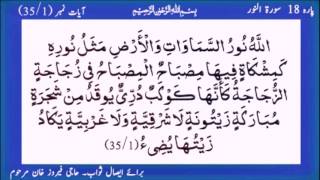 پارہ 18 سورۃ النور
بِسْمِ اللهِ الرَّحْمٰنِ الرَّحِيْمِ
آیات نمبر (35/1)
اللَّهُ نُورُ السَّمَاوَاتِ وَالْأَرْضِ مَثَلُ نُورِهِ
كَمِشْكَاةٍ فِيهَا مِصْبَاحٌ الْمِصْبَاحُ فِي زُجَاجَةٍ
الزُّجَاجَةُ كَأَنَّهَا كَوْكَبٌ دُرِّيٌّ يُوقَدُ مِنْ شَجَرَةٍ
مُبَارَكَةٍ زَيْتُونَةٍ لَا شَرْقِيَّةٍ وَلَا غَرْبِيَّةٍ يَكَادُ
زَيْتُهَا يُضِيءُ (35/1)
برائے ایصال ثواب۔ حاجی فیروز خان مرحوم